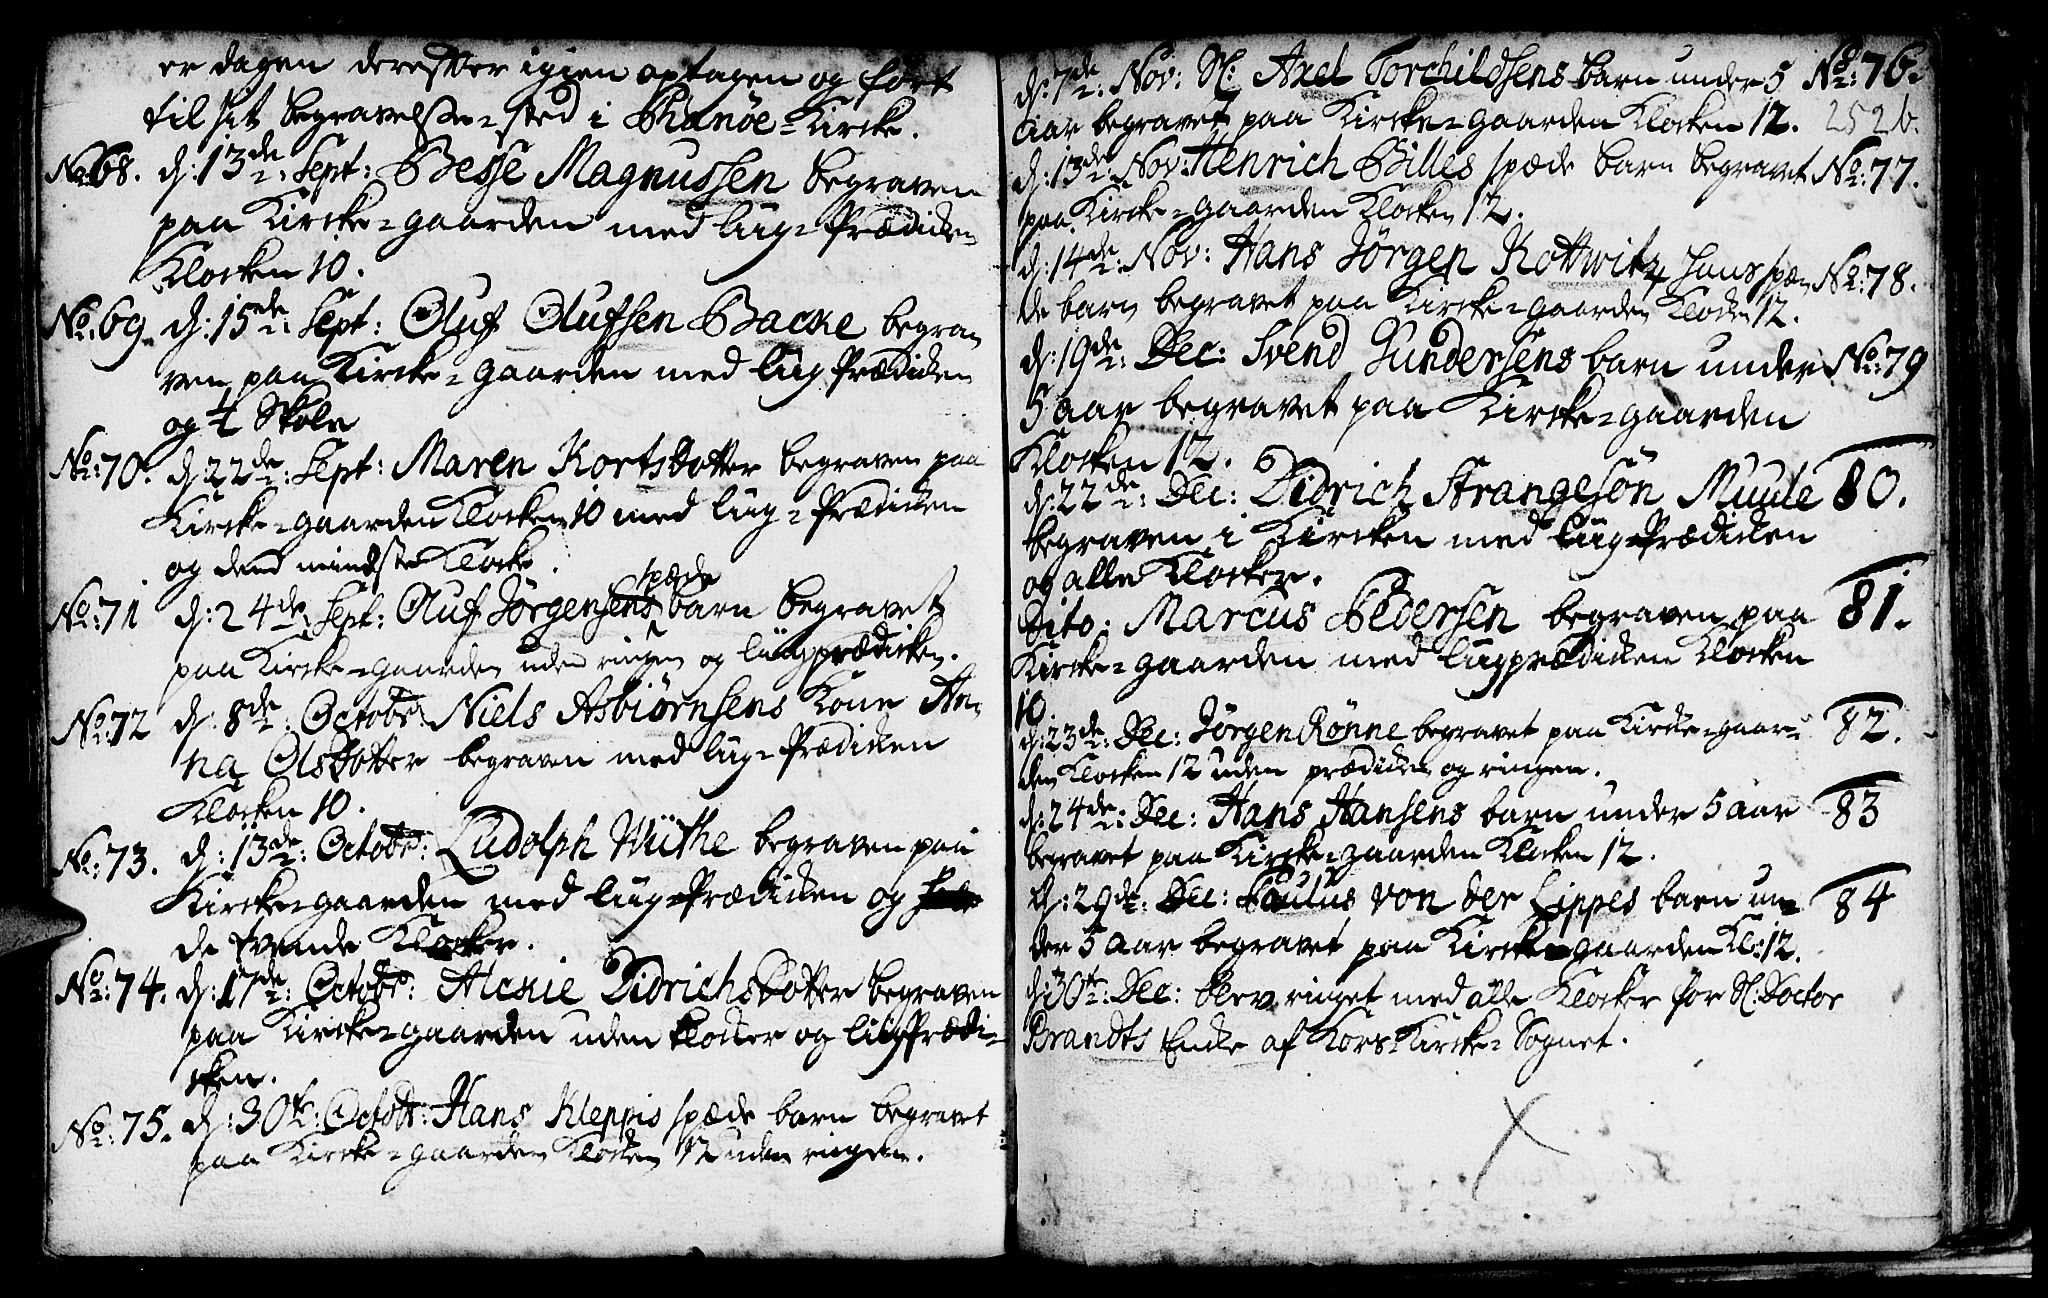 er dagen derefter igien optagen og ført
til sit begravelse-sted i Thanøe-Kircke.
No: 68. d: 13de Sept: Besse Magnussen begraven
paa Kircke-gaarden med liig-Prædicken
Klocken 10.
No: 69. d: 15de Sept: Oluf Olufsen Backe begra-
ven paa Kircke-gaarden med liig Prædicken
og 4 Skole
No: 70. d: 22de Sept: Maren Kortsdotter begraven paa
Kircke-gaarden Klocken 10 med liig-Prædicken
og dend mindste Klocke.
spæde
No: 71 d: 24de Sept: Oluf Jørgensens barn begravet
paa Kircke-gaarden uden ringen og liigprædicken.
No: 72 d. 8de Octobr: Niels Asbiørnsens Kone An-
na Olsdotter begraven med liig-Prædicken
Klocken 10.
No: 73. d: 13de Octobr: Ludolph Wüthe begraven paa
Kircke-gaarden med liig-Prædicken og
de tvende Klocker.
No: 74. d: 17de Octobr: Alckie Didrichsdotter begraven
paa Kircke-gaarden uden klocker og liigPrædi-
cken.
No: 75. d: 30te: Octobr: Hans Kleppis spæde barn begravet
paa Kircke-gaarden Klocken 12 uden ringen.
d: 7de Nov: Sl: Axel Torchildsens barn under 5 No: 76.
aar begravet paa Kircke-gaarden Klocken 12. 2526.
d: 13de Nov: Henrich Billes spæde barn begravet No: 77.
paa Kircke-gaarden Klocken 12.
d: 14de: Nov: Hans Jørgen Kottwitz hans spæ- No: 78.
de barn begravet paa Kircke-gaarden Klocken 12.
d: 19de: Dec: Svend Gundersens barn under No: 79
5 aar begravet paa Kircke-gaarden
Klocken 12.
d: 22de: Dec: Didrich Strangesøn Muule 80.
begraven i Kircken med liig-Prædicken
og alle Klocker.
Dito: Marcus Pedersen begraven paa 81.
Kircke-gaarden med liigprædicken Klocken
10.
d: 23de: Dec: Jørgen Rønne begravet paa Kircke-gaar- 82.
den Klocken 12 uden prædicken og ringen.
d: 24de: Dec: Hans Hansens barn under 5 aar 83
begravet paa Kircke-gaarden Klocken 12.
d: 29de: Dec: Paulus von der Lippes barn un- 84
der 5 aar begravet paa Kircke-gaarden Kl: 12.
d: 30te: Dec: blev ringet med alle Klocker for Sl: Doctor
Brandts Encke af Kors-Kircke-Sognet.